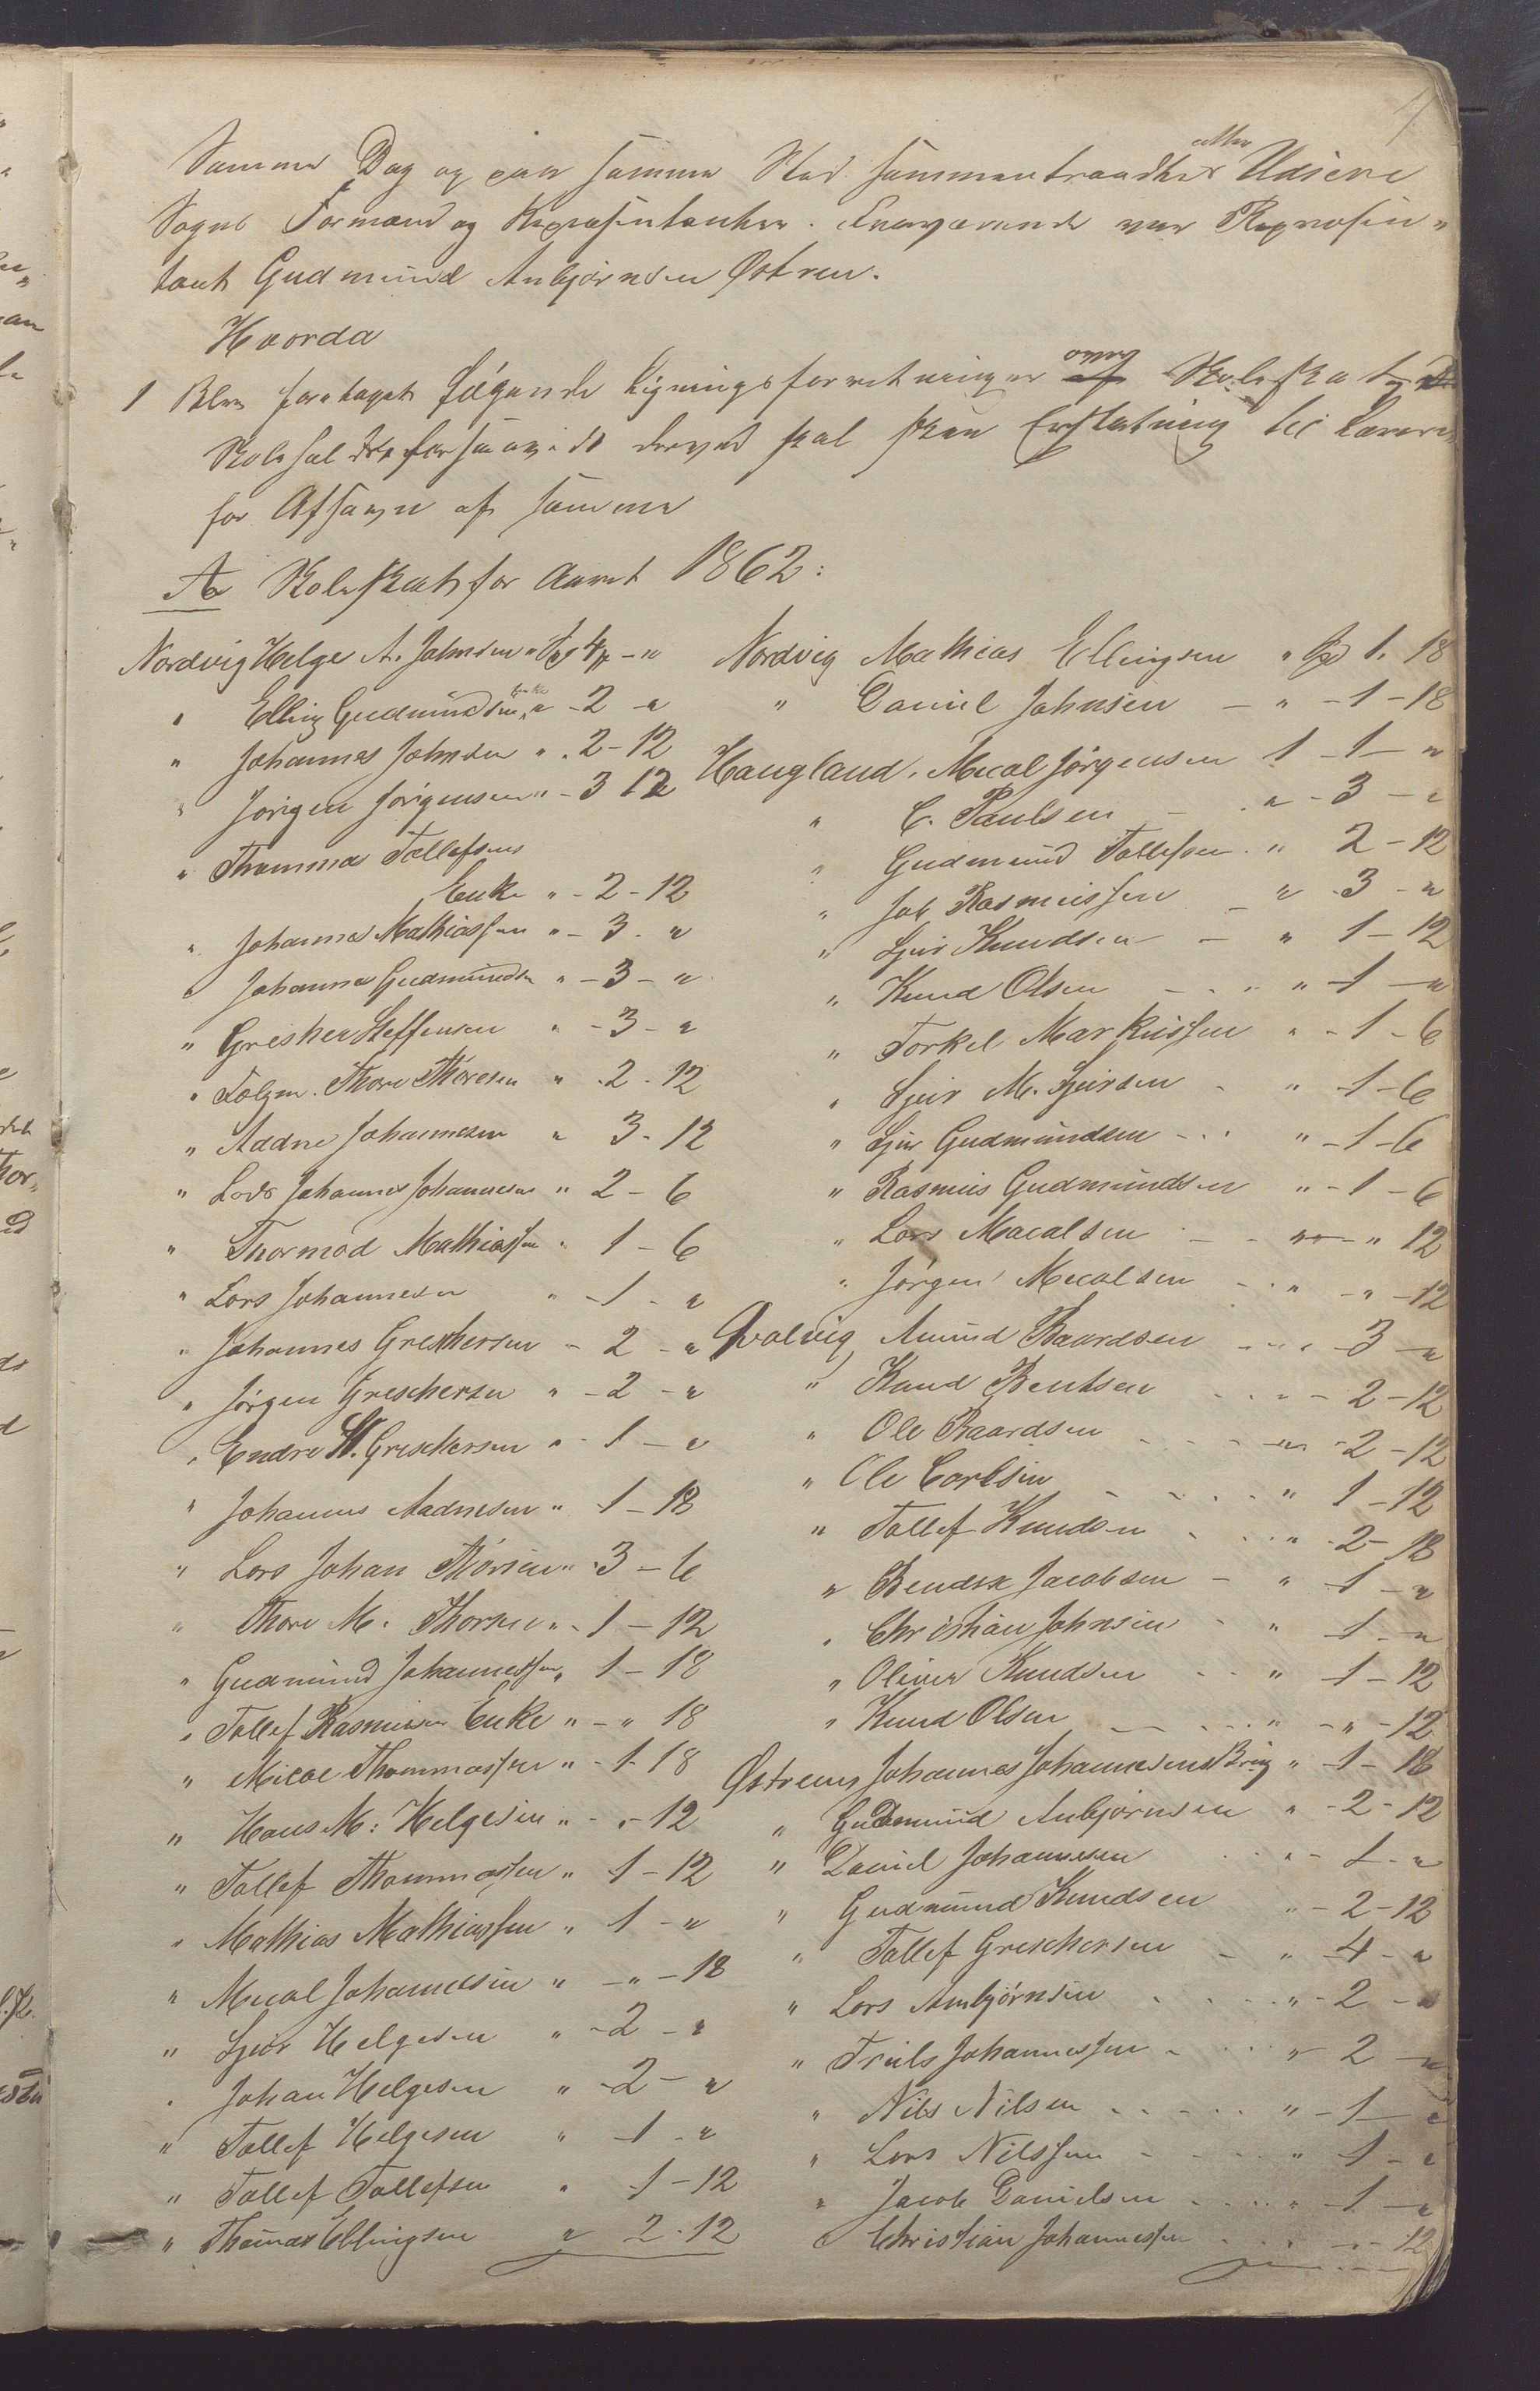 Samme Dag og paa samme Sted sammentraadte Udsire
Sogns Formænd og Repræsentanter. Fraværende var Repræsen„
tant Gudmund Anbjørnsen Østrem.
Hvorda
1 Blev foretaget følgende Ligningsforretninger over Skoleskat
skal skee Erstatning til Lærer
for Afsavn af samme
A Skoleskat for Aaret 1862:
Nordvig Helge A. Johnsen " 4 - "
" Elling Gudmundsen Enke " - 2 - "
" Johannes Johnsen " . 2 - 12
" Jørgen Jørgensen " - 3 12
" Thomma Tollefsens
Enke " - 2 - 12
" Johannes Mathiassen " - 3 - "
" Johannes Gudmundsen " - 3 - "
" Greskes Steffensen " - 3 - "
" Thore Thoresen " - 2 - 12
" Aadne Johannesen " 3 - 12
" Lods Johannes Johannesen " 2 - 6
" Thormod Mathiassen " 1 - 6
" Lars Johannesen " - 1 - "
" Johannes Greschersen - 2 - "
" Jørgen Greschersen " - 2 - "
" Endre Greschersen " - 1 - "
" Johannes Aadnesen " - 1 - 18
" Lars Johan Thorsen " - 3 - 6
" Thore M. Thorsen " - 1 - 12
" Gudmund Johannessen " 1 - 18
" Tollef Rasmussen Enke " - " 18
" Micael Thommassen " - 1 - 18
" Hans M: Helgesen " - " - 12
" Tollef Thommassen " 1 - 12
" Mathias Mathiassen " 1 - "
" Micael Johannesen " - " - 18
" Sjur Helgesen " - 2 - "
" Johan Helgesen " - 2 - "
" Tollef Helgesen " - 1 - "
" Tollef Tollefsen " - 1 - 12
" Thomas Ellingsen " 2 - 12
Nordvig Mathias Ellingsen " 1. 18
" Daniel Johnsen - " - 1 - 18
Haugland. Mical Jørgensen 1 - 1 - "
" C. Paulsen - " - 3 - "
" Gudmund Tollefsen . " 2 - 12
" Job Rasmussen - " - 3 - "
" Sjur Knudsen - " 1 - 12
" Knud Olsen - . . " - 1 - "
" Torkel Markussen " - 1 - 6
" Sjur M. Sjursen - " - 1 - 6
" Sjur Gudmundsen - . . " - 1 - 6
" Rasmus Gudmundsen " - 1 - 6
" Lars Macalsen - - " - " 12
" Jørgen Micalsen - . " - " - 12
Qvalvig Amund Baardsen - . . . 3 - "
" Knud Bentsen . . . - 2 - 12
" Ole Baardsen . - . - " - 2 - 12
" Ole Carlsen - . . . " 1 - 12
" Tollef Knudsen . . . " - 2 - 18
" Bendix Jacobsen - " - 1 - "
" Christian Johnsen - " - 1 - "
" Oliver Knudsen - . " - 1 - 12
" Knud Olsen - . . . " - " - 12
Østrem Johannes Johannesen " - 1 - 18
" Gudmund Anbjørnsen " - 2 - 12
" Daniel Johannesen . . " - 1 - "
" Gudmund Knudsen " - 2 - 12
" Tollef Greschersen - " - 4 - "
" Lars Ambjørnsen . . . " - 2 - "
" Truls Johannessen - . . " 2 - "
" Nils Nilsen . . - . . " - 1 - "
" Lars Nilssen - . . . " 1 - "
" Jacob Danielsen . . . " - 1 - "
" Christian Johannessen . . - " - 12